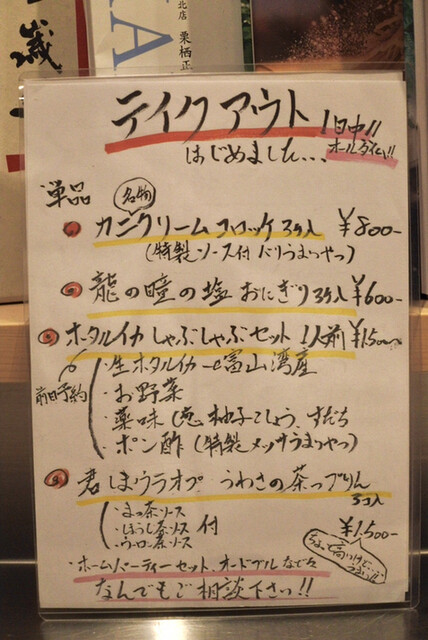 北店 栗栖正
テイクアウト
1日中!!
オールタイム!!
はじめました...
単品
名物
カニクリームコロッケ3ヶ入 ¥800-
(特製ソース付 バリうまいやつ)
龍の瞳の塩おにぎり3ヶ入 ¥600-
ホタルイカしゃぶしゃぶセット 1人前 ¥1500-
前日予約
・生ホタルイカ 富山湾産
・お野菜
・薬味(葱 柚子こしょう すだち
・ポン酢(特製 メッサうまいやつ)
君しまウラオプ うわさの茶っぷりん
3コ入
・まっ茶ソース
・ほうじ茶ソース 付
・ウーロン茶ソース
¥1,500-
ちょっと高いけど...
うまい!!
・ホームパーティーセット、オードブルなど
なんでもご相談下さいっ!!